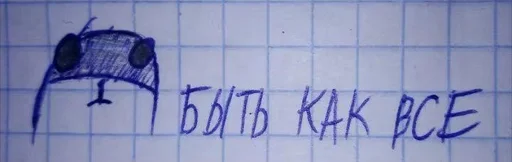 БЫТЬ КАК ВСЕ